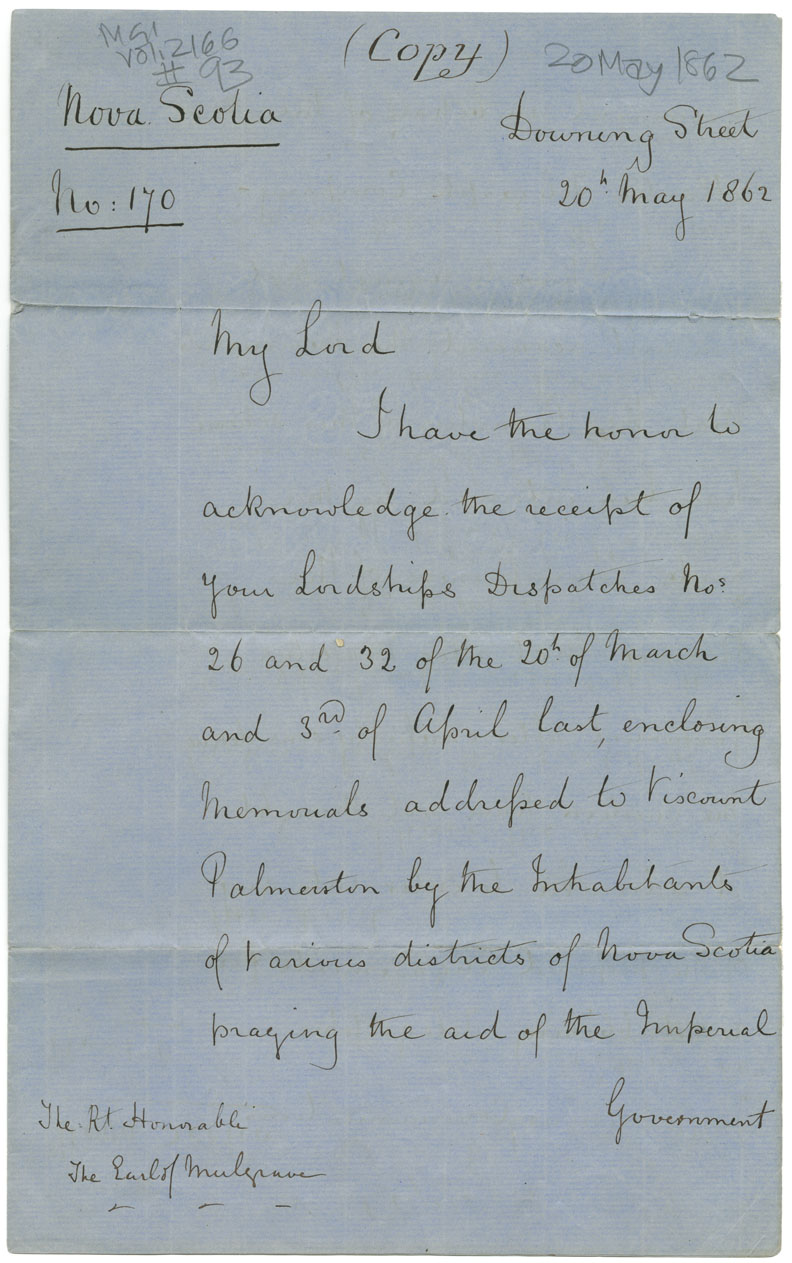 MG1
vol. 2166
# 93
(Copy)
20 May 1862
Nova Scotia
No: 170
Downing Street
20h May 1862
My Lord
I have the honor to
acknowledge the receipt of
your Lordships Dispatches Nos
26 and 32 of the 20h of March
and 3rd of April last, enclosing
Memorials addressed to Viscount
Palmerston by the Inhabitants
of various districts of Nova Scotia
praying the aid of the Imperial
Government
The Rt Honorable
The Earl of Mulgrave